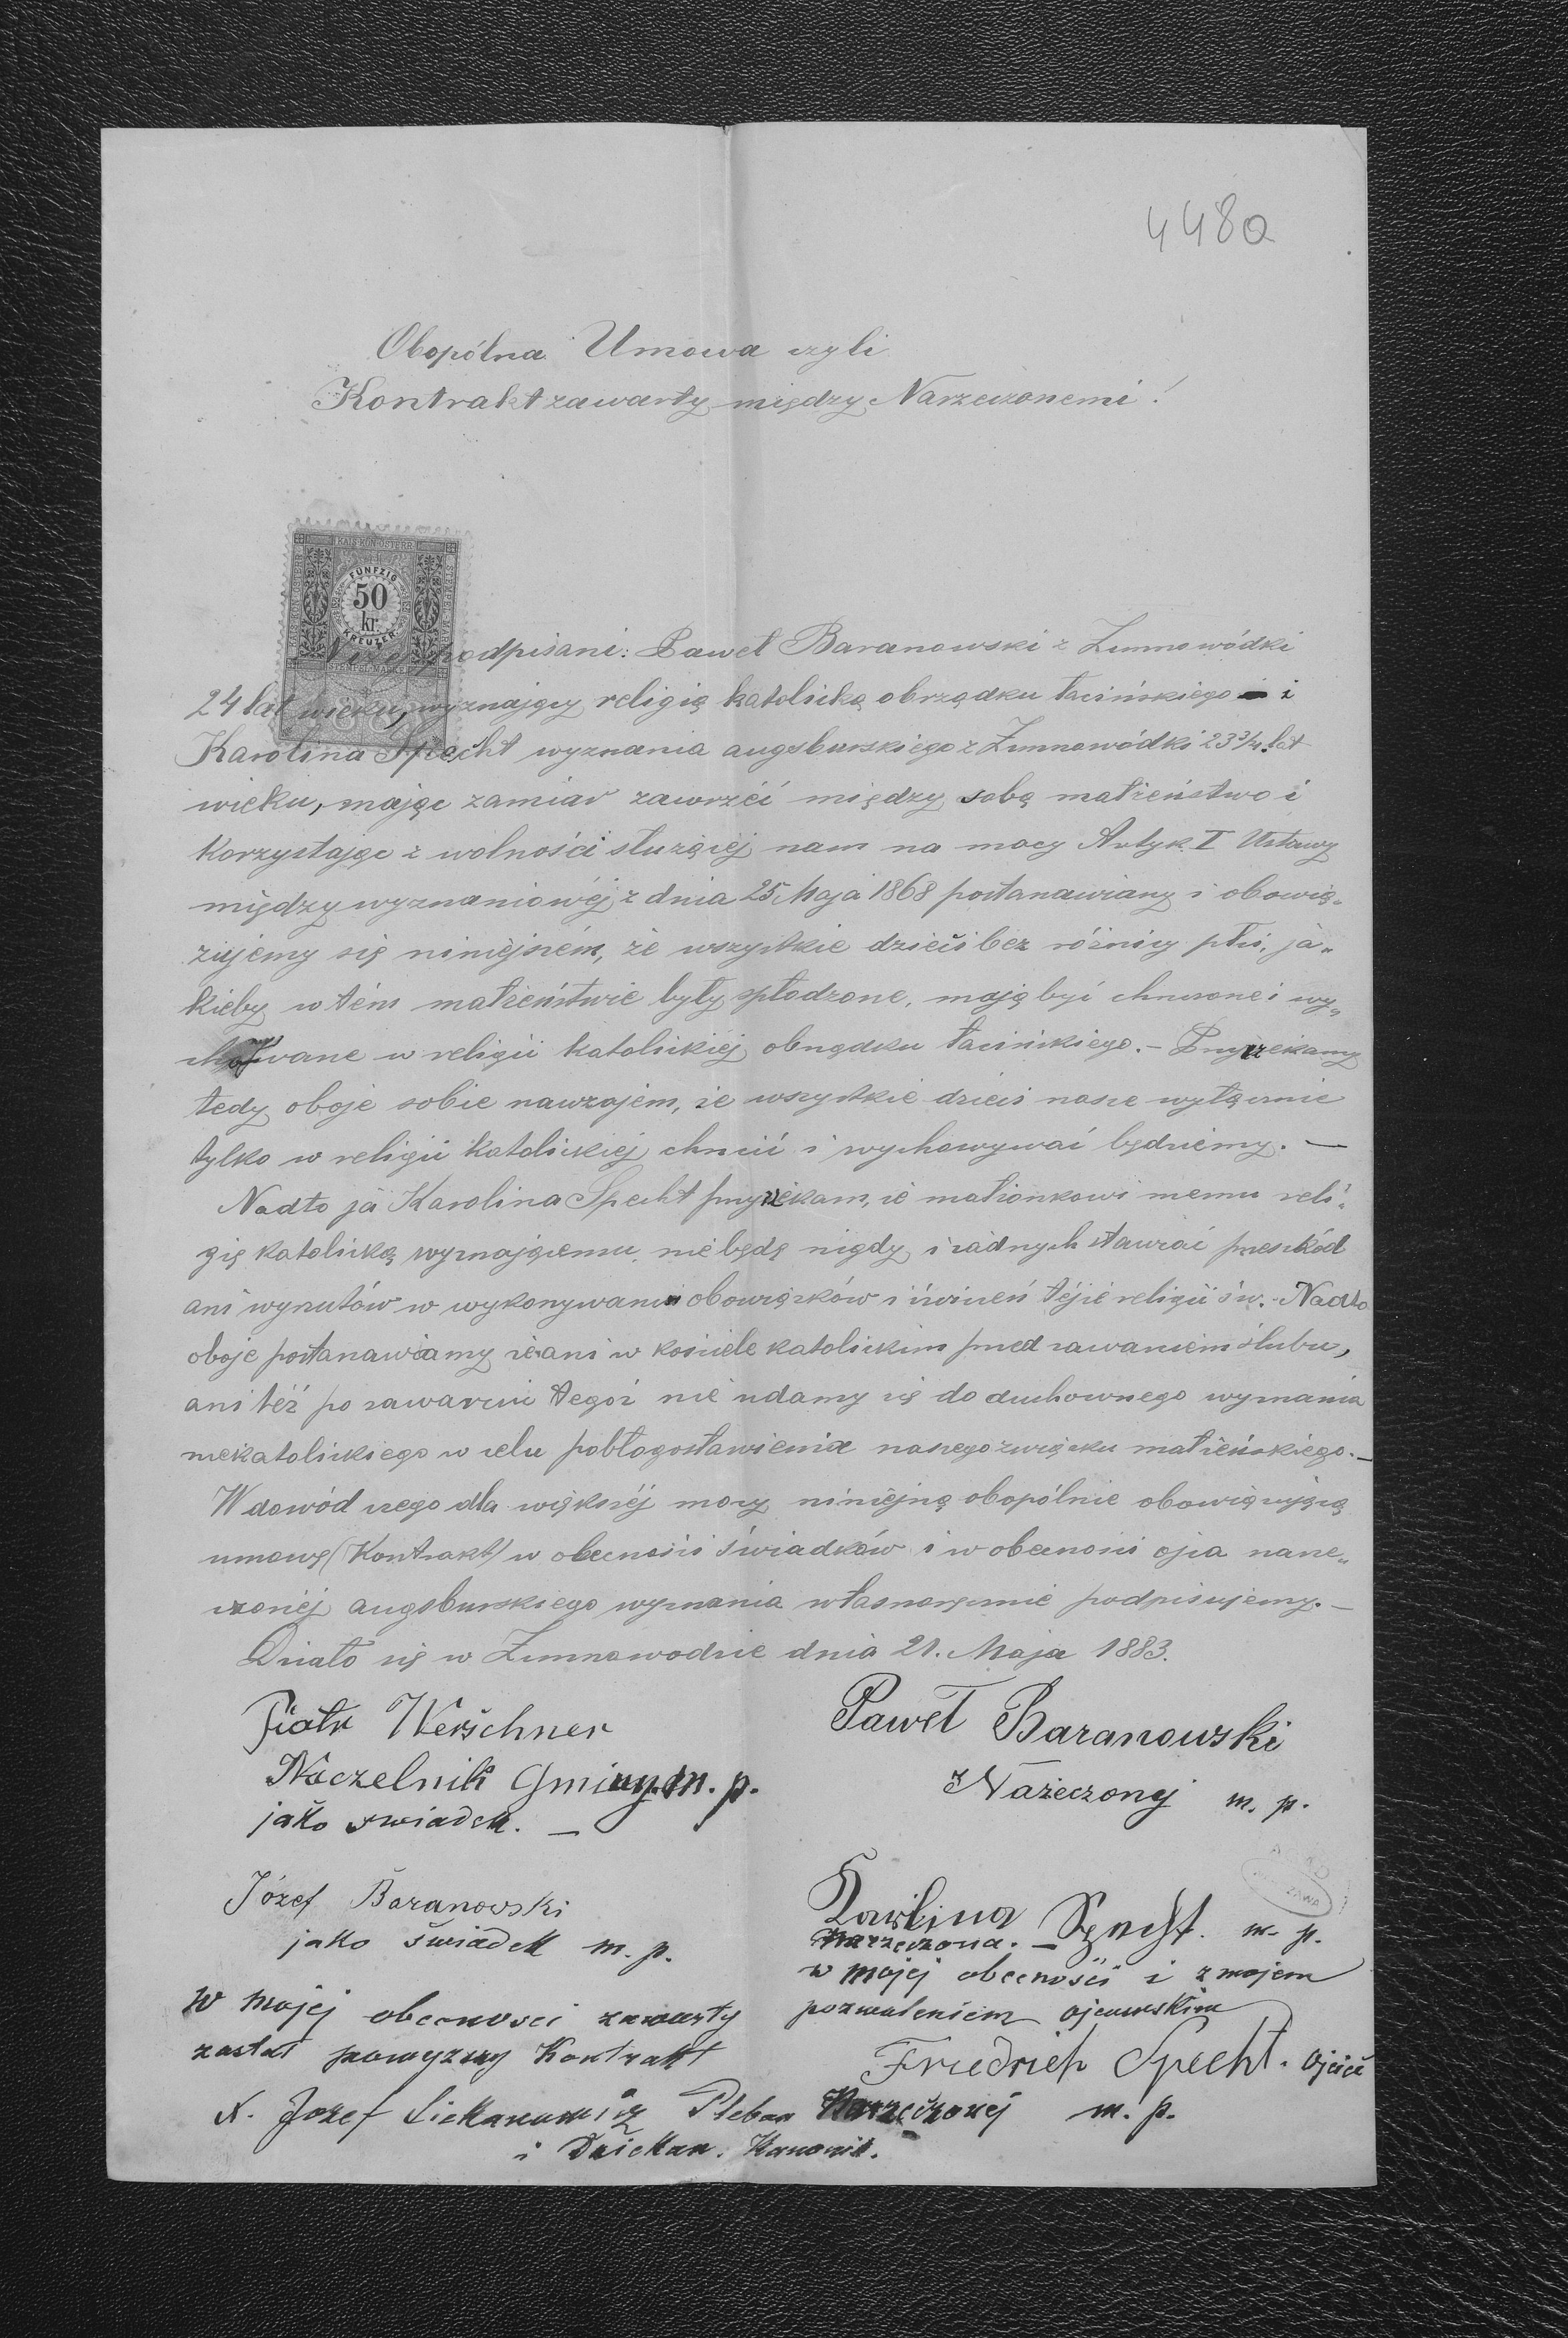 4480
Obopólna Umowa czyli
Kontrakt zawarty między Narzeczonemi!
KAIS. KÖN. ÖSTERR.
FÜNFZIG
50
kr.
KREUZER
STEMPEL MARKE
podpisani: Paweł Baranowski z Zimnowódki
24 lat wieku, wyznający religią katolicką obrządku łacińskiego i
Karolina Specht wyznania augsburskiego z Zimnowódki 23 3/4 lat
wieku, mając zamiar zawrzéć między sobą małżeństwo i
korzystając z wolności służącéj nam na mocy Artyk. I Ustawy
międzywyznaniowéj z dnia 25 Maja 1868 postanawiamy i obowią„
zujemy się niniejszém, że wszystkie dzieci bez różnicy płci, ja„
kieby w tém małżeństwie były spłodzone, mają być chrzczone i wy„
chowywane w religii katolickiéj obrządku łacińskiego. – Przyrzekamy
tedy oboje sobie nawzajem, że wszystkie dzieci nasze wyłącznie
tylko w religii katolickiéj chrzcić i wychowywać będziemy. —
Nadto ja Karolina Specht przyrzekam, że małżonkowi memu reli„
gię katolicką wyznającemu, nie będę nigdy i żadnych stawiać przeszkód
ani wyrzutów w wykonywaniu obowiązków i ćwiczeń téjże religii św. – Nadto
oboje postanawiamy że ani w kościele katolickim przed zawarciem ślubu,
ani téż po zawarciu tegoż nie udamy się do duchownego wyznania
niekatolickiego w celu pobłogosławienia naszego związku małżeńskiego. –
W dowód czego dla większéj mocy niniejszą obopólnie obowiązującą
umowę (Kontrakt) w obecności świadków i w obecności ojca narze„
czonéj augsburskiego wyznania własnoręcznie podpisujemy. –
Działo się w Zimnowodzie dnia 21. Maja 1883.
Piotr Werschner
Naczelnik Gminy m. p.
jako swiadek. —
Paweł Baranowski
Nażeczony m. p.
Józef Baranowski
jako świadek m. p.
Karolina Specht. m. p.
narzeczona. —
w mojej obecności i z mojem
pozwoleniem ojcowskim
Friedrich Specht. Ojciec
Narzeczonej m. p.
w mojej obecnosci zawarty
został powyzszy Kontrakt
X. Jozef Pleban
i Dziekan. Kanonik.
AGAD
WARSZAWA